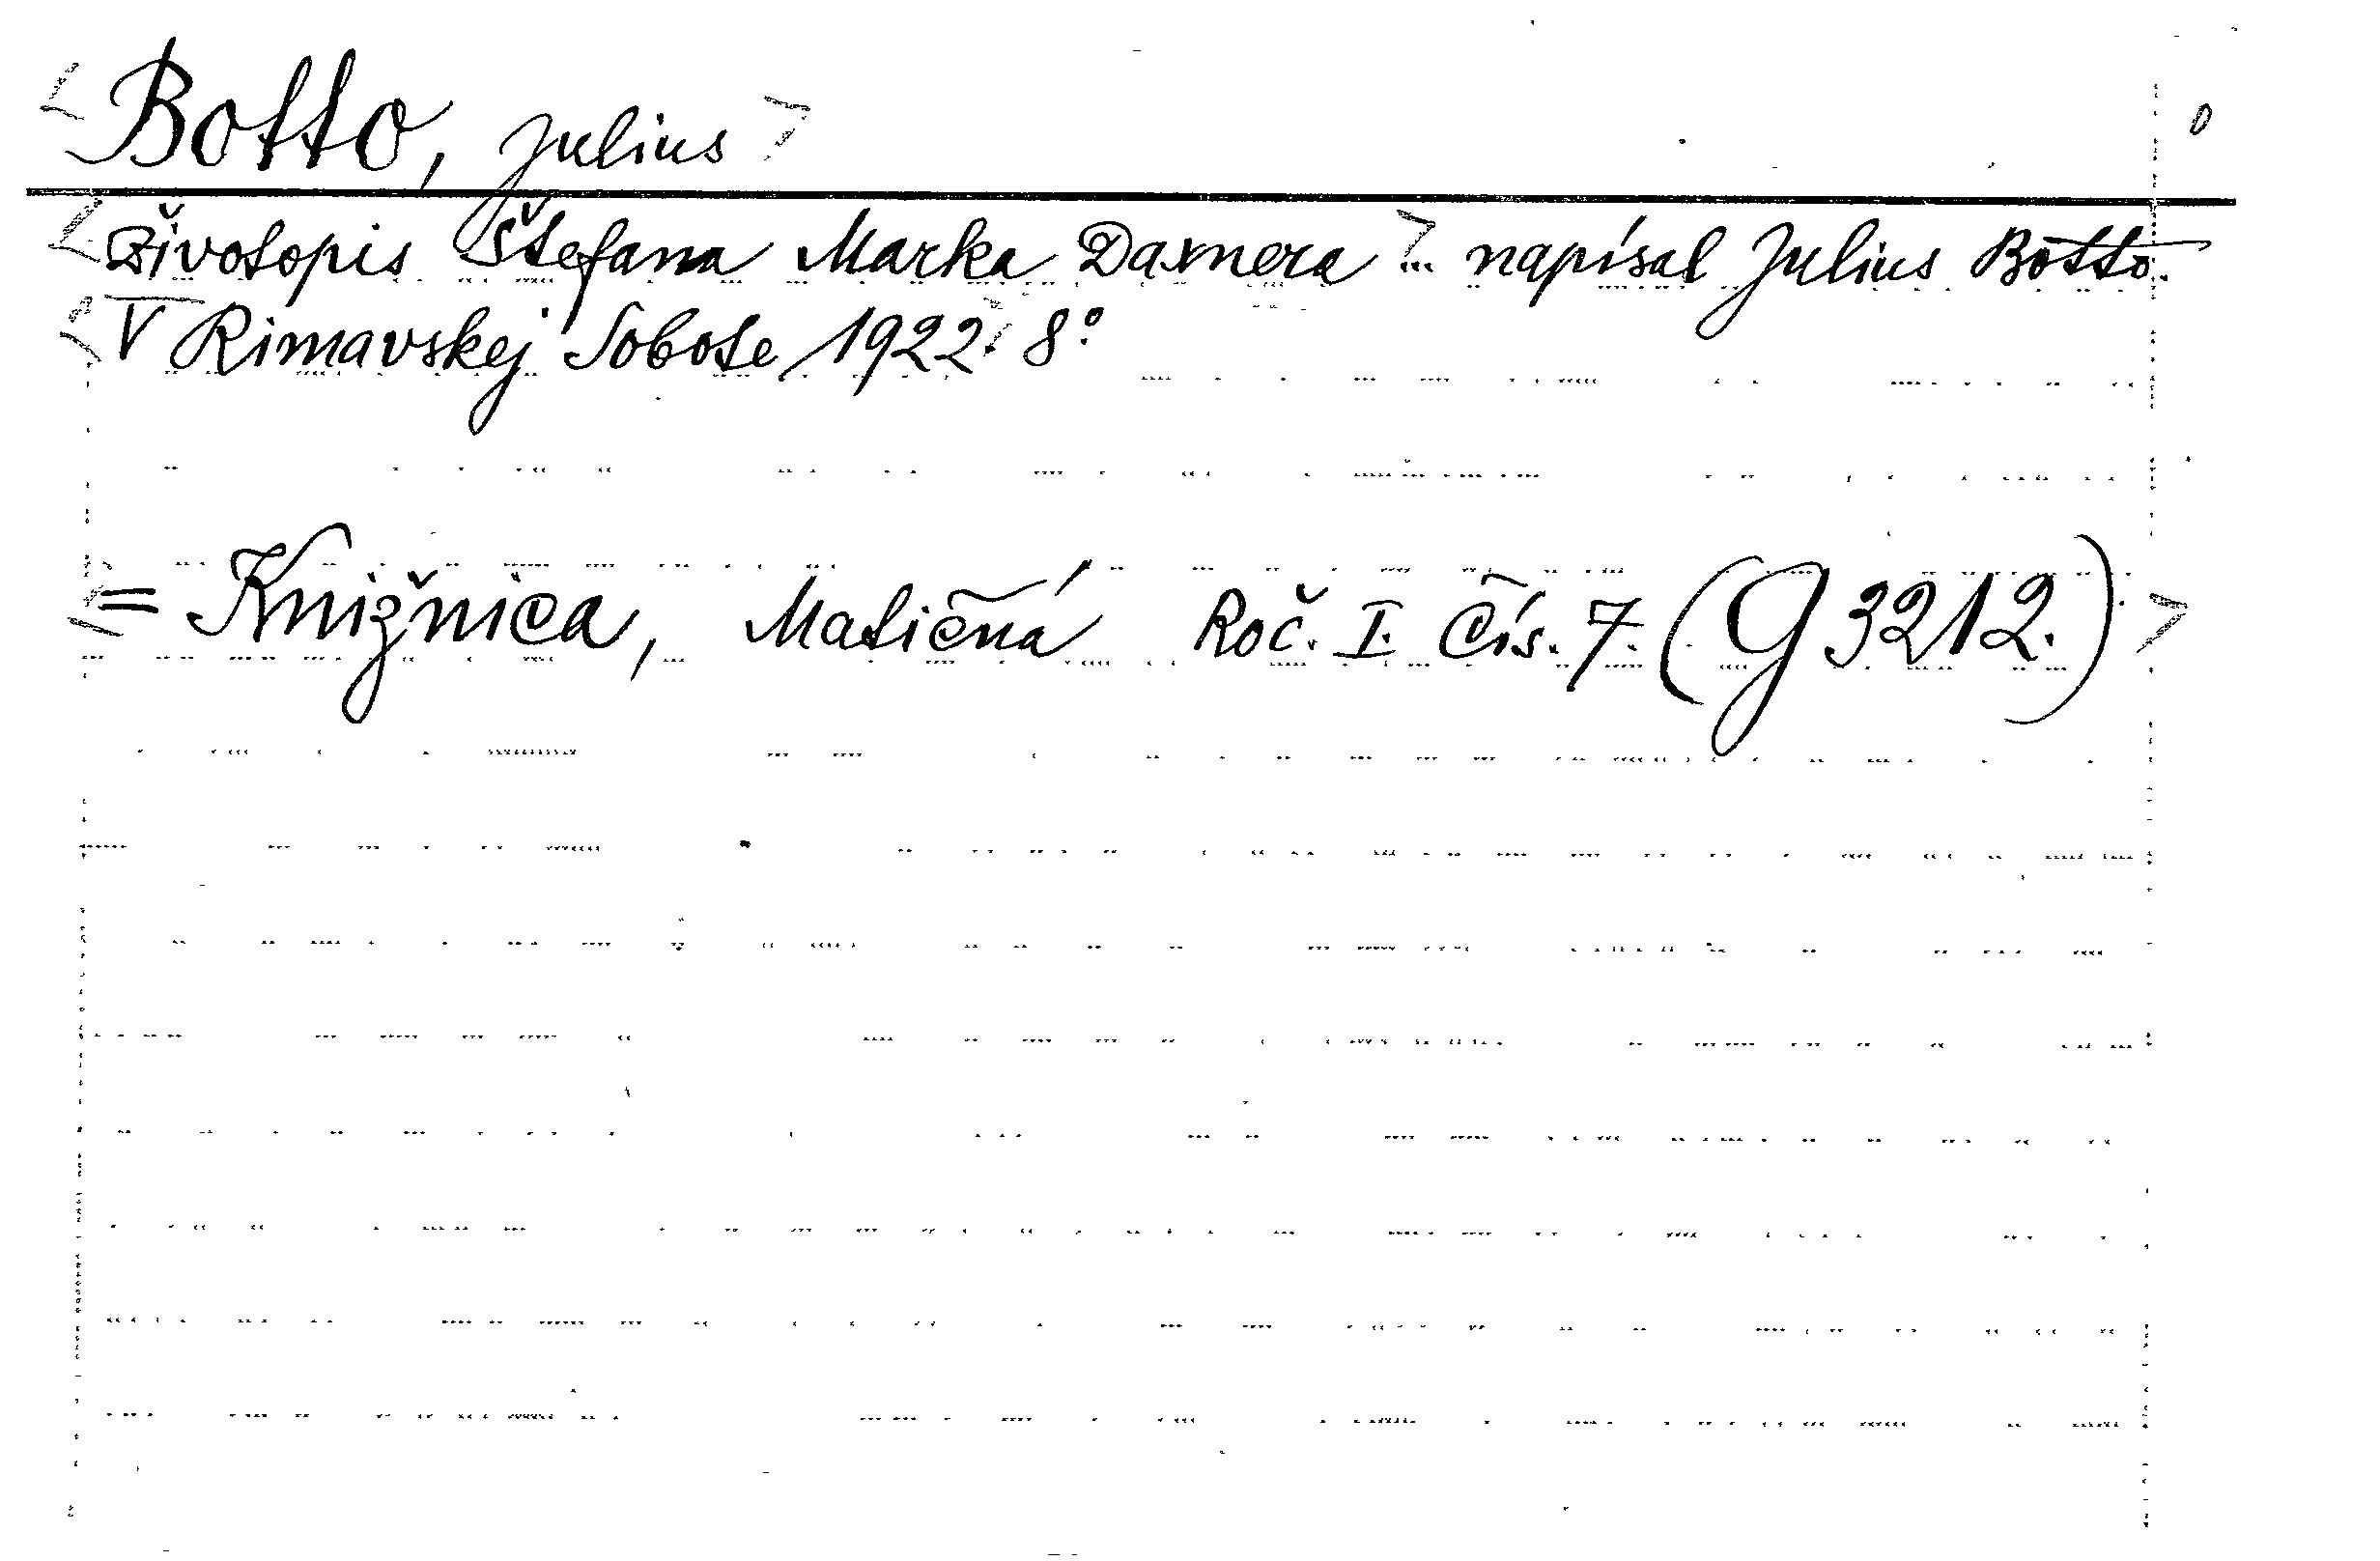 <Botto, Julius> 0
<Životopis Štefana Marka Daxnera>... napísal Julius Botto.
<V Rimavskej Sobote 1922> 8°
<= Knižnica, Matičná Roč. I. Čís. 7. (G 3212.)>